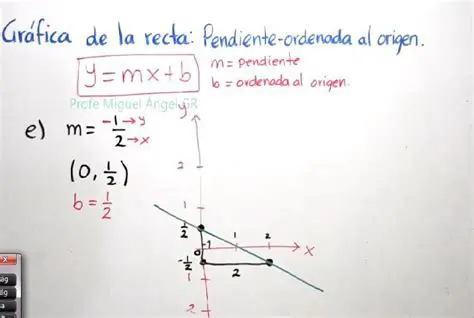 Gráfica de la recta: Pendiente-ordenada al origen.
y = mx + b
m = pendiente
b = ordenada al origen.
Profe Miguel Angel GR
e) m = -1/2 → y → x
(0, 1/2)
b = 1/2
y
2
1
1/2
-1
1
2
0
x
-1/2
2
1
2